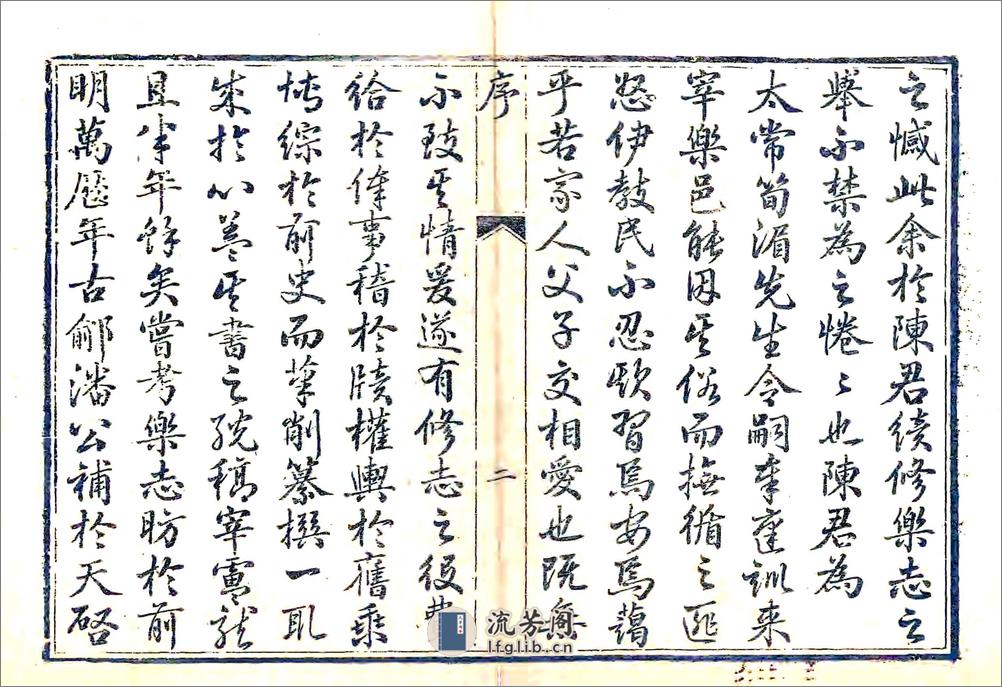 之憾此余於陳君续修樂志之
舉不禁為之惓〻也陳君為
太常筍湄先生令嗣奉庭訓来
宰樂邑能因其俗而撫循之匪
怒伊教民不忍欺習焉安焉藹
乎若家人父子交相愛也既無
序
二
不致其情爰遂有修志之役
給於俸事稽於牘權輿於舊乘
博综於前史而筆削纂撰一取
宋於心蓋其書之脱稿宰
且半年餘矣嘗考樂志昉於前
明萬厯年古鄃潘公補於天啓
流芳阁
lfglib.cn